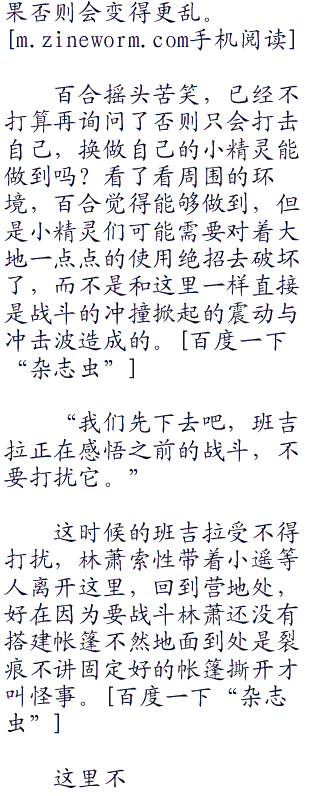 果否则会变得更乱。
[m.zineworm.com手机阅读]
百合摇头苦笑，已经不
打算再询问了否则只会打击
自己，换做自己的小精灵能
做到吗？看了看周围的环
境，百合觉得能够做到，但
是小精灵们可能需要对着大
地一点点的使用绝招去破坏
了，而不是和这里一样直接
是战斗的冲撞掀起的震动与
冲击波造成的。[百度一下
“杂志虫”]
“我们先下去吧，班吉
拉正在感悟之前的战斗，不
要打扰它。”
这时候的班吉拉受不得
打扰，林萧索性带着小遥等
人离开这里，回到营地处，
好在因为要战斗林萧还没有
搭建帐篷不然地面到处是裂
痕不讲固定好的帐篷撕开才
叫怪事。[百度一下“杂志
虫”]
这里不